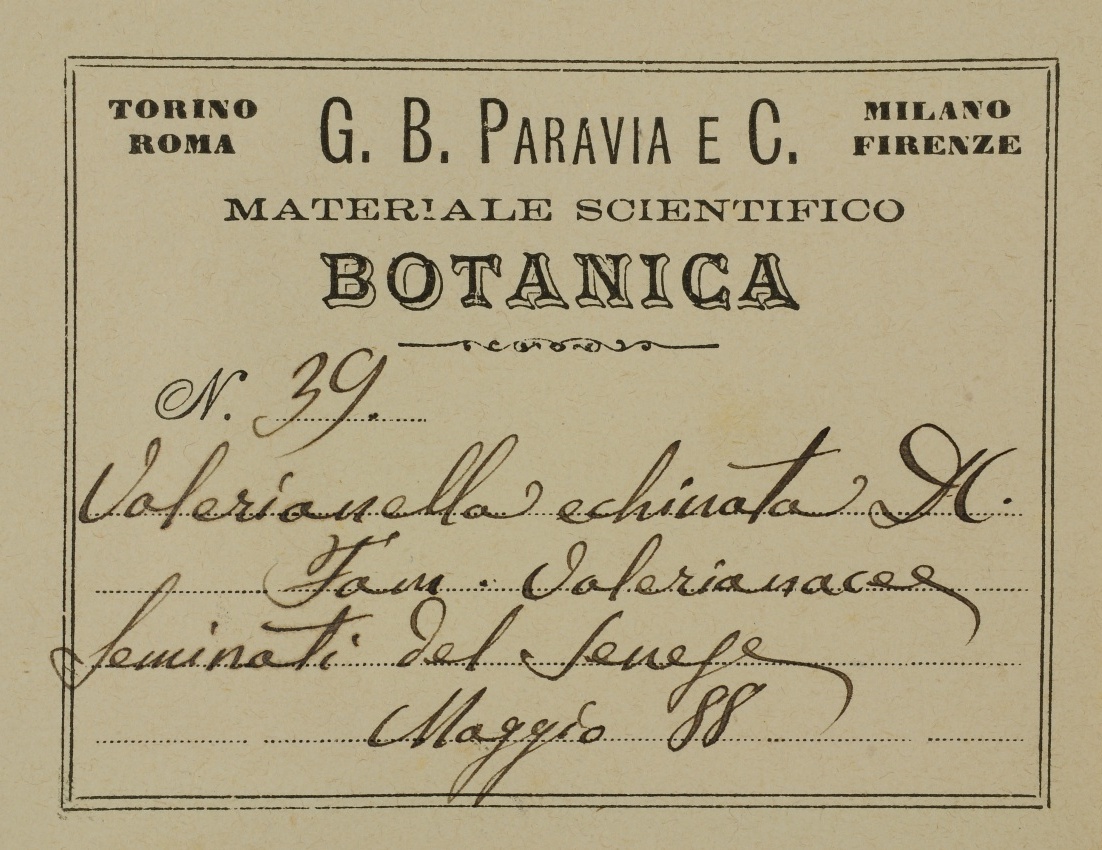 TORINO ROMA G. B. PARAVIA E C. MILANO FIRENZE
MATERIALE SCIENTIFICO
BOTANICA
N. 39.
Valerianella echinata DC.
Fam. Valerianacee
Seminati del
Maggio 88